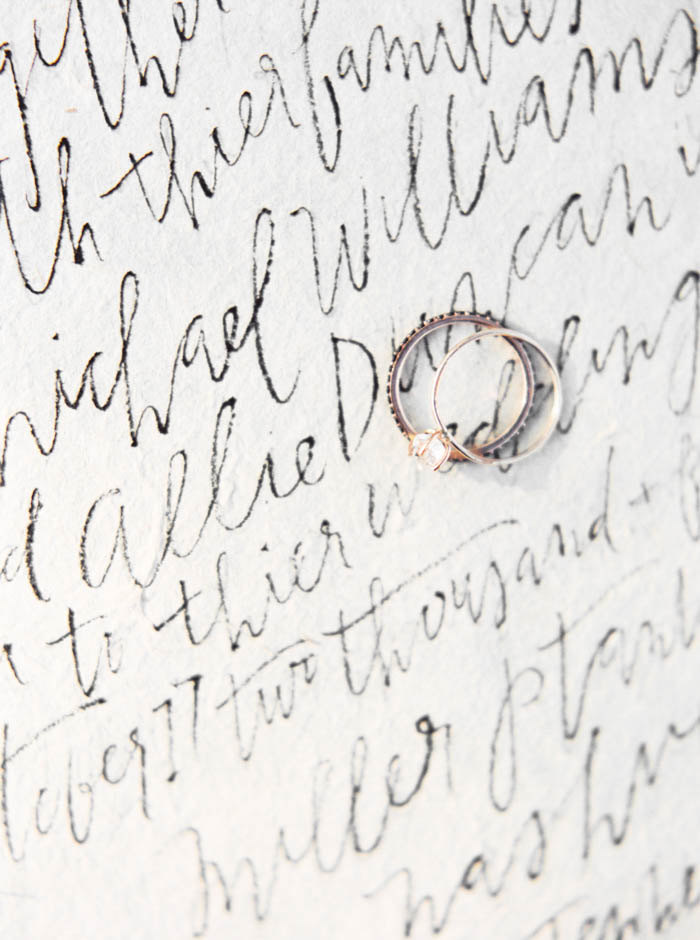 gether
th thier families
michael Williams
d Allie Dun can i
n to thier wedding
tober 17 two thousand + 
miller plant
nashv